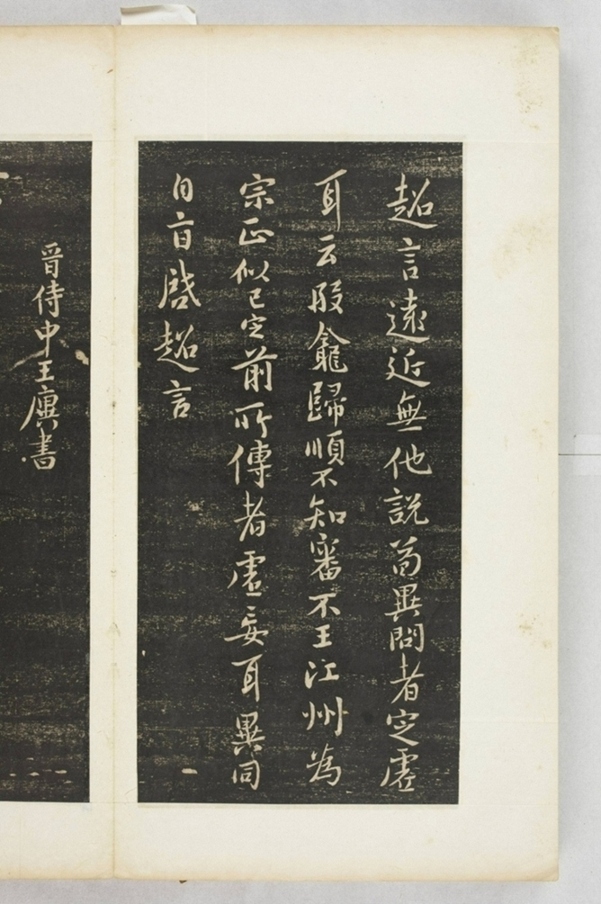 超言遠近無他說苟異問者定虛
耳云段龕歸順不知審不王江州為
宗正似已定前所傳者虛妄耳異同
啟超言
晉侍中王廙書